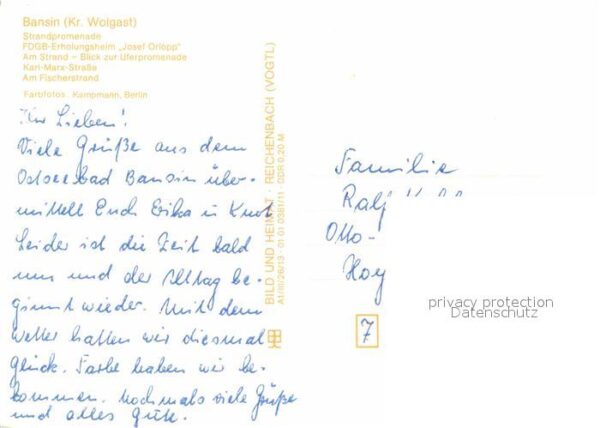 Bansin (Kr. Wolgast)
Strandpromenade
FDGB-Erholungsheim „Josef Orlopp"
Am Strand – Blick zur Uferpromenade
Karl-Marx-Straße
Am Fischerstrand
Farbfotos: Kampmann, Berlin
Ihr Lieben!
Viele Grüße aus dem
Ostseebad Bansin über-
mittelt Euch Erika u. Kurt
Leider ist die Zeit bald
um und der Alltag be-
ginnt wieder. Mit dem
Wetter hatten wir diesmal
Glück. Farbe haben wir be-
kommen. Nochmals viele Grüße
und alles Gute.
BILD UND HEIMAT · REICHENBACH (VOGTL)
A1/III/26/13 · 01 01 0361/11 · DDR 0,20 M
Familie
Ralf
Otto-
Hoy
7
privacy protection
Datenschutz